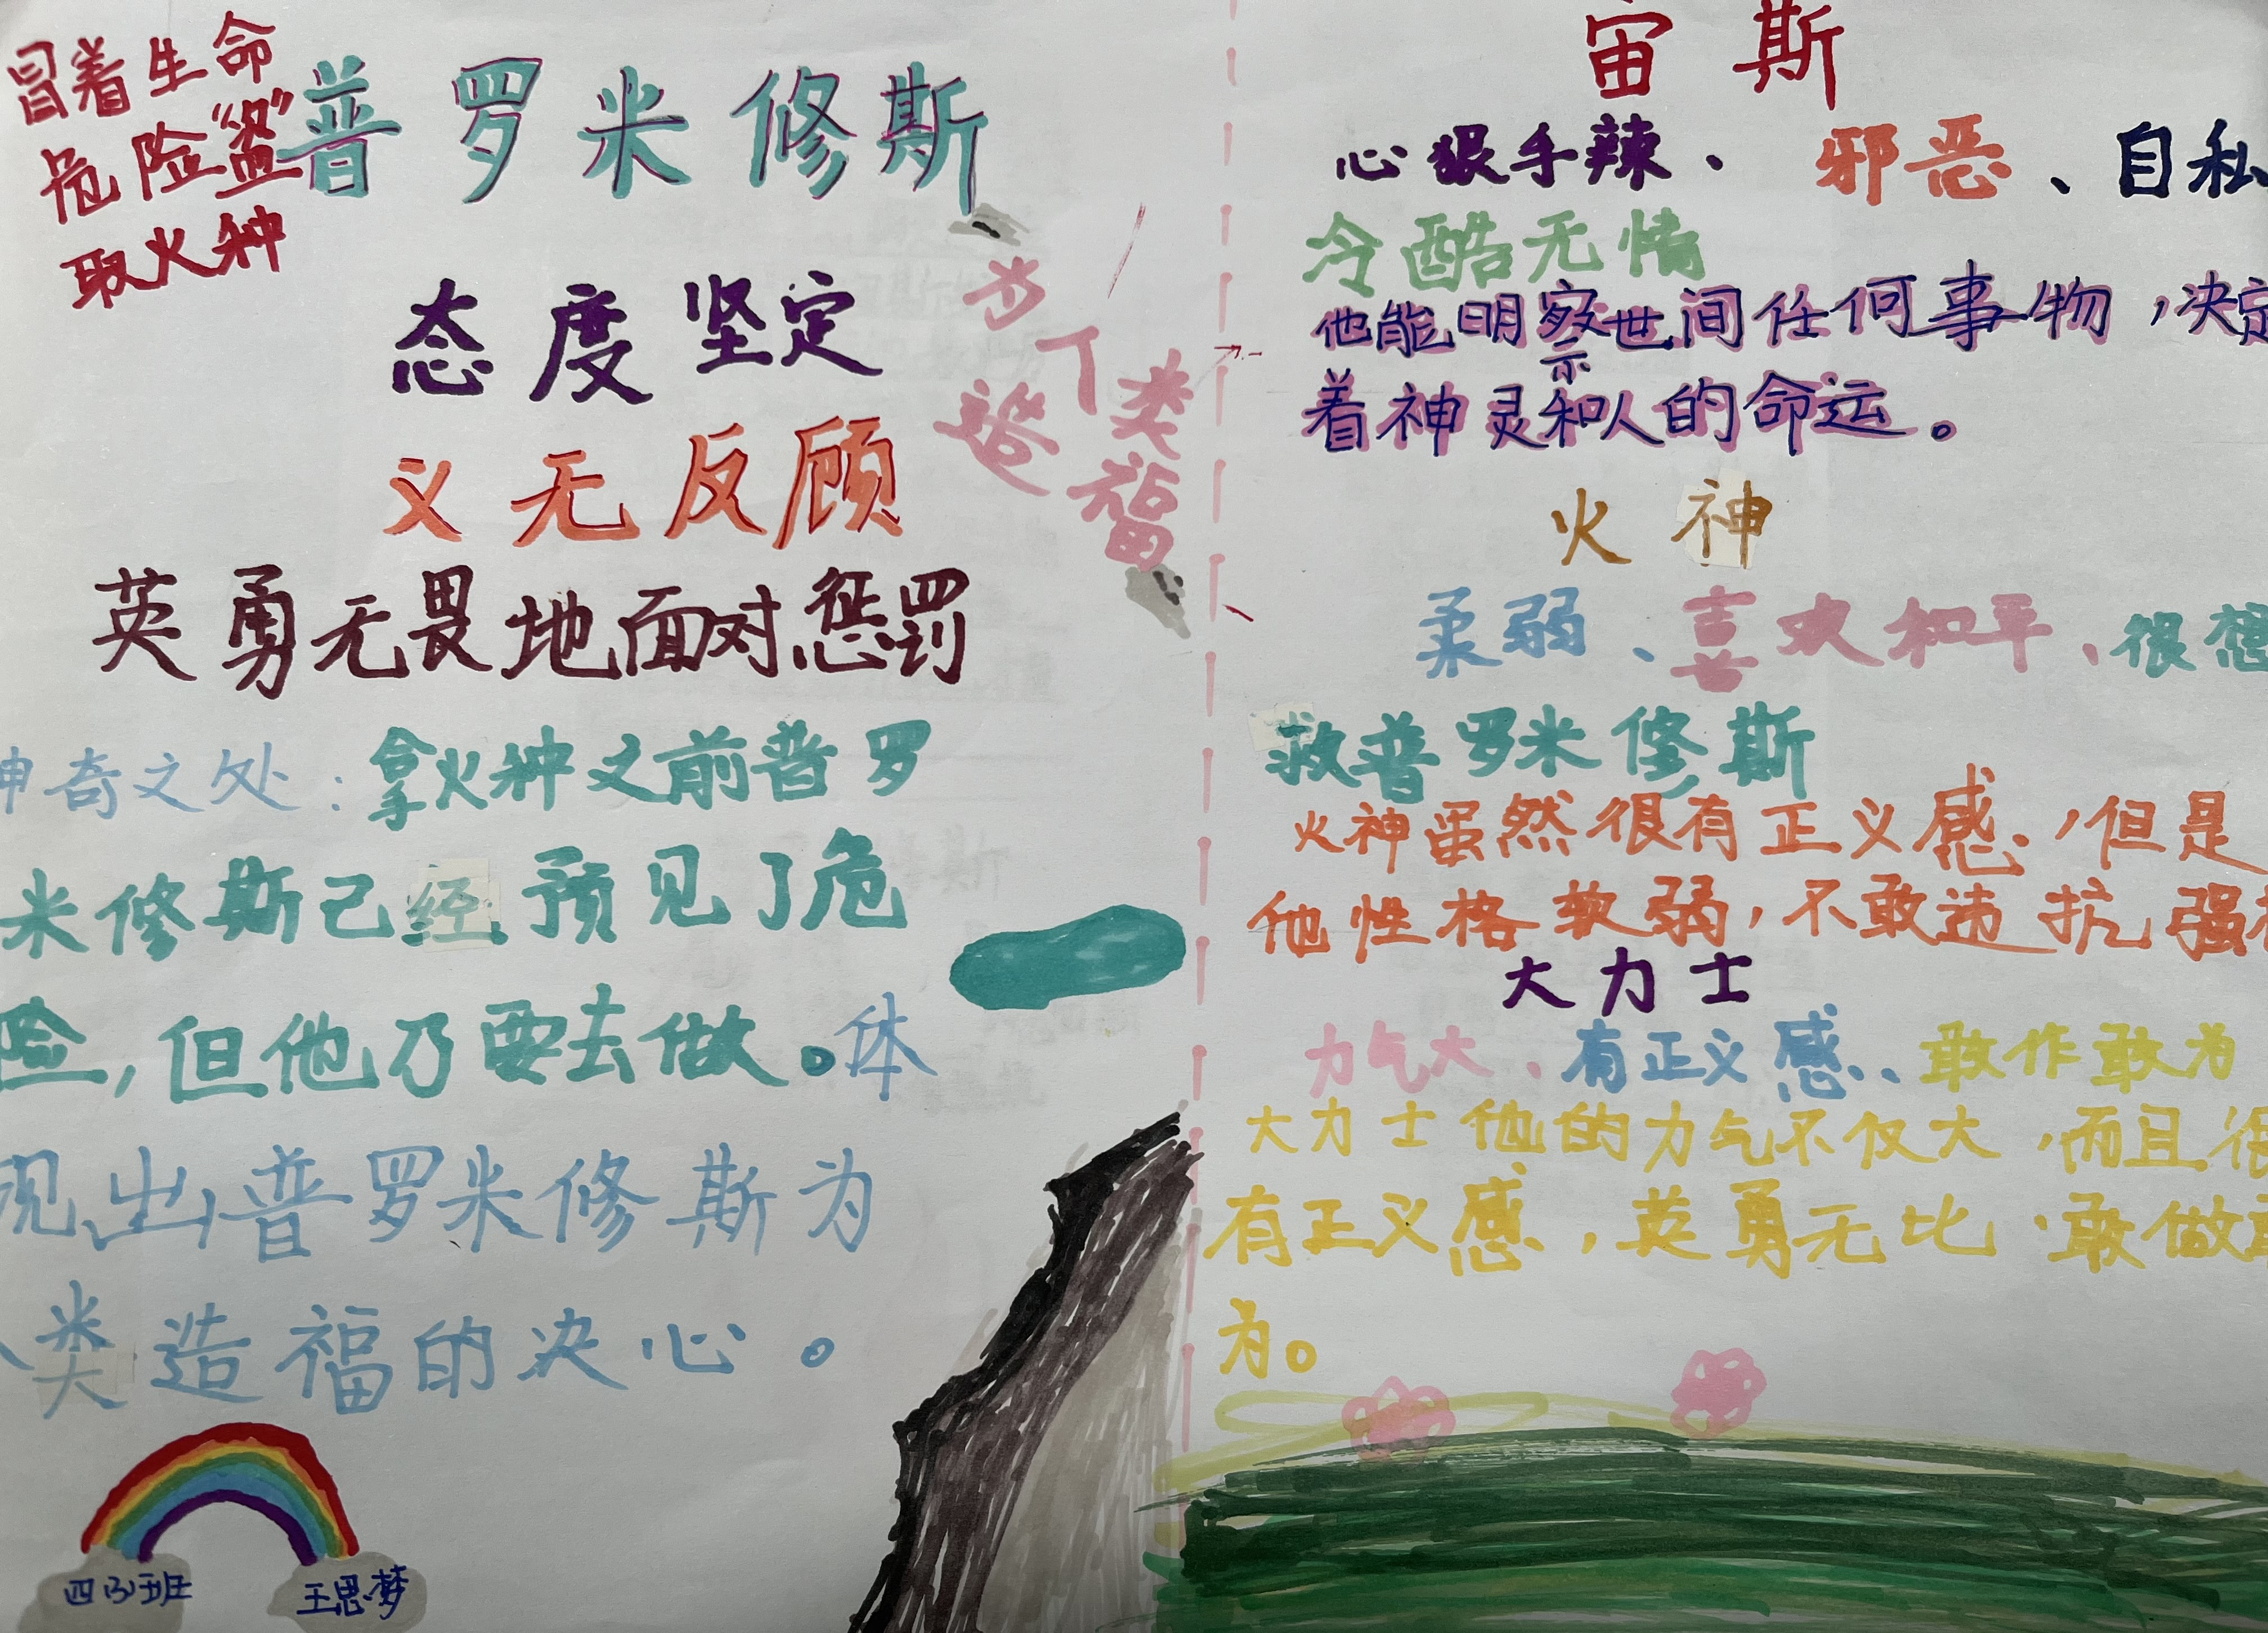 冒着生命
危险“盗”
取火种
普罗米修斯
态度坚定
义无反顾
为人类
造福
英勇无畏地面对惩罚
神奇之处：拿火种之前普罗
米修斯己经预见了危
险，但他乃要去做。体
现出普罗米修斯为
人类造福的决心。
四(3)班
王思梦
宙斯
心狠手辣、邪恶、自私
冷酷无情
他能明察世间任何事物，决定
着神灵和人的命运。
火神
柔弱、喜欢和平、很想
救普罗米修斯
火神虽然很有正义感，但是
他性格软弱，不敢违抗强
大力士
力气大、有正义感、敢作敢为
大力士他的力气不仅大，而且很
有正义感，英勇无比，敢做敢
为。